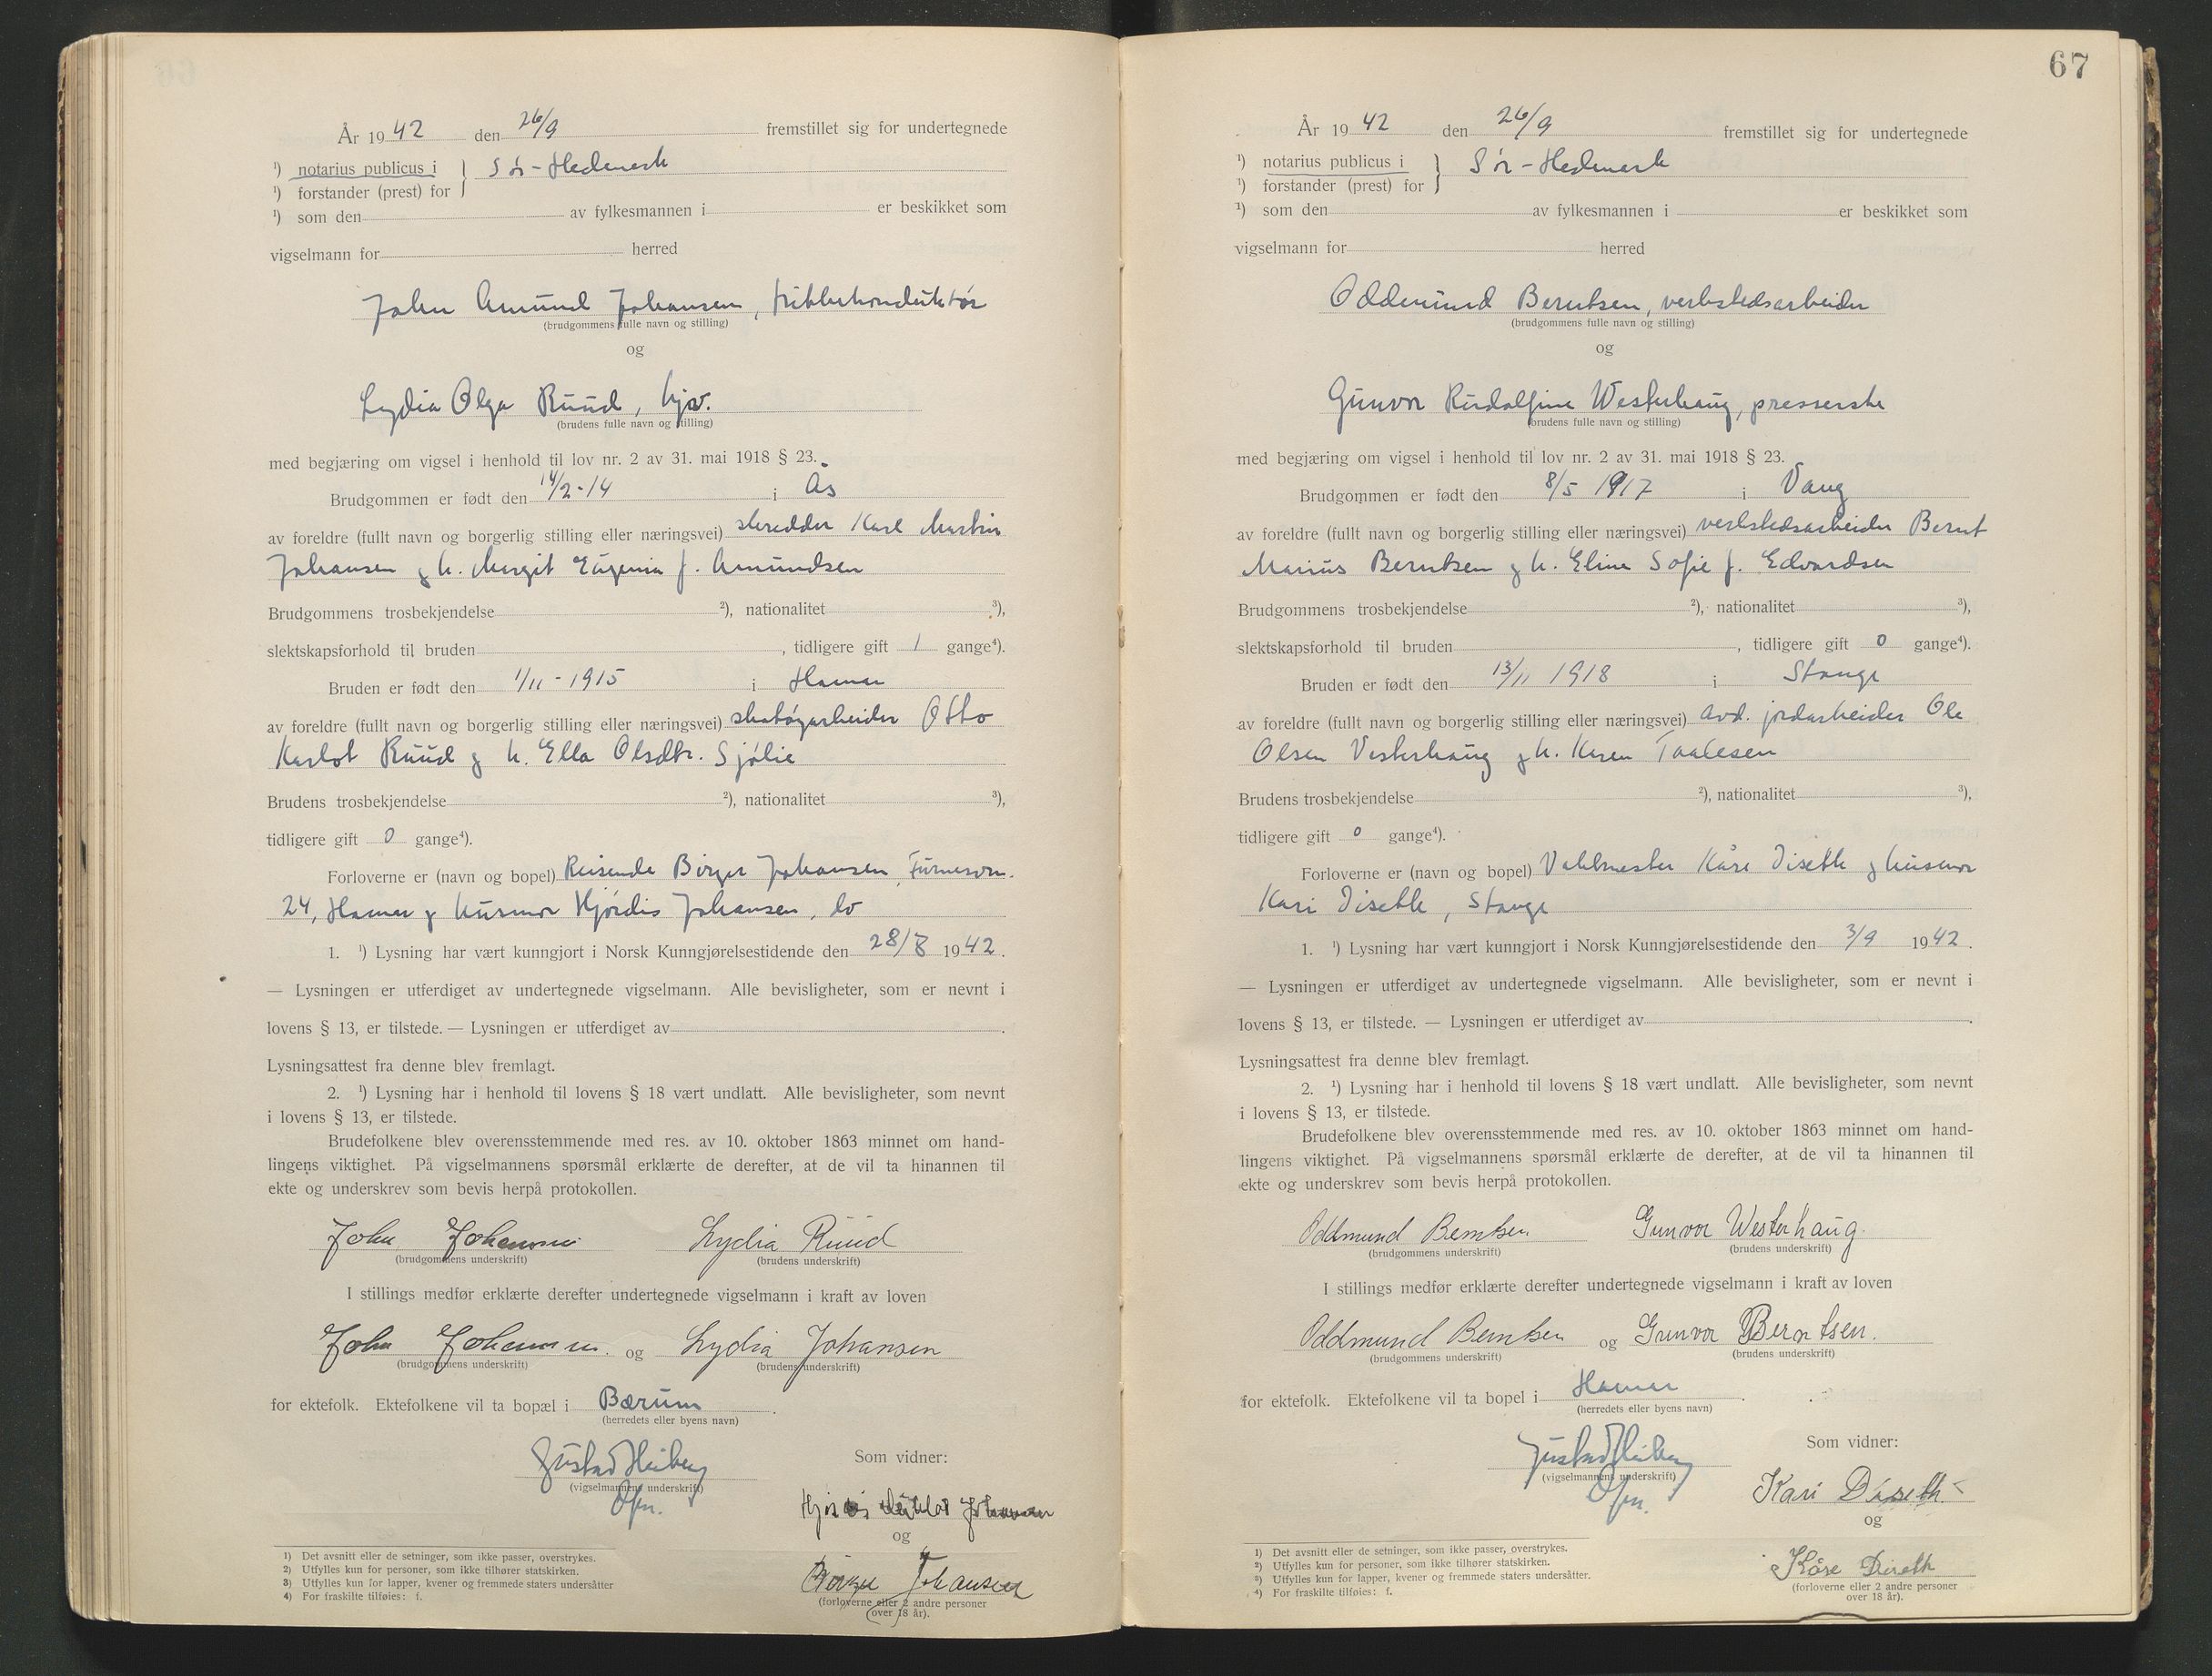 År 19 42 den 26/9 fremstillet sig for undertegnede
¹) notarius publicus i } Sør-Hedmark
¹) forstander (prest) for
¹) som den av fylkesmannen i er beskikket som
vigselmann for herred
John Amund Johansen, trikkekonduktør
(brudgommens fulle navn og stilling)
og
Lydia Olga Ruud, hjv.
(brudens fulle navn og stilling)
med begjæring om vigsel i henhold til lov nr. 2 av 31. mai 1918 § 23.
Brudgommen er født den 14/2-14 i Ås
av foreldre (fullt navn og borgerlig stilling eller næringsvei) skredder Karl Martin
Johansen og h. Margit Eugenia f. Amundsen
Brudgommens trosbekjendelse ²), nationalitet ³),
slektskapsforhold til bruden , tidligere gift 1 gange⁴).
Bruden er født den 1/11-1915 i Hamar
av foreldre (fullt navn og borgerlig stilling eller næringsvei) skotøyarbeider Otto
Karlot Ruud og h. Ella Olsdtr. Sjølie
Brudens trosbekjendelse ²), nationalitet ³),
tidligere gift 0 gange⁴).
Forloverne er (navn og bopel) Reisende Birger Johansen, Furnesvn.
24, Hamar og husmor Hjørdis Johansen, do
1. ¹) Lysning har vært kunngjort i Norsk Kunngjørelsestidende den 28/8 1942.
— Lysningen er utferdiget av undertegnede vigselmann. Alle bevisligheter, som er nevnt i
lovens § 13, er tilstede. — Lysningen er utferdiget av .
Lysningsattest fra denne blev fremlagt.
2. ¹) Lysning har i henhold til lovens § 18 vært undlatt. Alle bevisligheter, som nevnt
i lovens § 13, er tilstede.
Brudefolkene blev overensstemmende med res. av 10. oktober 1863 minnet om hand-
lingens viktighet. På vigselmannens spørsmål erklærte de derefter, at de vil ta hinannen til
ekte og underskrev som bevis herpå protokollen.
John Johansen Lydia Ruud
(brudgommens underskrift) (brudens underskrift)
I stillings medfør erklærte derefter undertegnede vigselmann i kraft av loven
John Johansen og Lydia Johansen
(brudgommens underskrift) (brudens underskrift)
for ektefolk. Ektefolkene vil ta bopæl i Bærum .
(herredets eller byens navn)
Gustav Heiberg Som vidner:
(vigselmannens underskrift)
Ofm.
Hjørdis Johansen
og
Birger Johansen
(forloverne eller 2 andre personer
over 18 år).
1) Det avsnitt eller de setninger, som ikke passer, overstrykes.
2) Utfylles kun for personer, som ikke tilhører statskirken.
3) Utfylles kun for lapper, kvener og fremmede staters undersåtter
4) For fraskilte tilføies: f.
67
År 19 42 den 26/9 fremstillet sig for undertegnede
¹) notarius publicus i } Sør-Hedmark
¹) forstander (prest) for
¹) som den av fylkesmannen i er beskikket som
vigselmann for herred
Oddmund Berntsen, verkstedsarbeider
(brudgommens fulle navn og stilling)
og
Gunvor Rudolfine Westerhaug, presserske
(brudens fulle navn og stilling)
med begjæring om vigsel i henhold til lov nr. 2 av 31. mai 1918 § 23.
Brudgommen er født den 8/5 1917 i Vang
av foreldre (fullt navn og borgerlig stilling eller næringsvei) verkstedsarbeider Bernt
Marius Berntsen og h. Eline Sofie f. Edvardsen
Brudgommens trosbekjendelse ²), nationalitet ³),
slektskapsforhold til bruden , tidligere gift 0 gange⁴).
Bruden er født den 13/11 1918 i Stange
av foreldre (fullt navn og borgerlig stilling eller næringsvei) avd. jordarbeider Ole
Olsen Vesterhaug og h. Karen Taalesen
Brudens trosbekjendelse ²), nationalitet ³),
tidligere gift 0 gange⁴).
Forloverne er (navn og bopel) Vaktmester Kåre Diseth og husmor
Kari Diseth, Stange
1. ¹) Lysning har vært kunngjort i Norsk Kunngjørelsestidende den 3/9 1942.
— Lysningen er utferdiget av undertegnede vigselmann. Alle bevisligheter, som er nevnt i
lovens § 13, er tilstede. — Lysningen er utferdiget av .
Lysningsattest fra denne blev fremlagt.
2. ¹) Lysning har i henhold til lovens § 18 vært undlatt. Alle bevisligheter, som nevnt
i lovens § 13, er tilstede.
Brudefolkene blev overensstemmende med res. av 10. oktober 1863 minnet om hand-
lingens viktighet. På vigselmannens spørsmål erklærte de derefter, at de vil ta hinannen til
ekte og underskrev som bevis herpå protokollen.
Oddmund Berntsen Gunvor Westerhaug.
(brudgommens underskrift) (brudens underskrift)
I stillings medfør erklærte derefter undertegnede vigselmann i kraft av loven
Oddmund Berntsen og Gunvor Berntsen.
(brudgommens underskrift) (brudens underskrift)
for ektefolk. Ektefolkene vil ta bopel i Hamar .
(herredets eller byens navn)
Gustav Heiberg Som vidner:
(vigselmannens underskrift)
Ofm.
Kari Diseth
og
Kåre Diseth
(forloverne eller 2 andre personer
over 18 år).
1) Det avsnitt eller de setninger, som ikke passer, overstrykes.
2) Utfylles kun for personer, som ikke tilhører statskirken.
3) Utfylles kun for lapper, kvener og fremmede staters undersåtter.
4) For fraskilte tilføies: f.